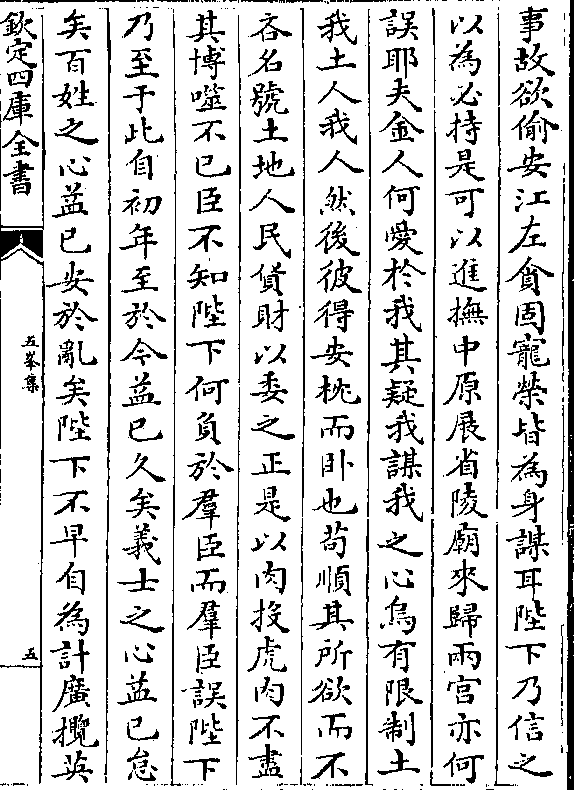 事故欲偷安江左貪固寵榮皆為身謀耳陛下乃信之
以為必持是可以進撫中原展省陵廟來歸兩宮亦何
誤耶夫金人何愛於我其疑我謀我之心烏有限制土
我土人我人然後彼得安枕而卧也苟順其所欲而不
吝名號土地人民貨財以委之正是以肉投虎肉不盡
其博噬不已臣不知陛下何負於羣臣而羣臣誤陛下
乃至于此自初年至於今益已久矣義士之心益已怠
矣百姓之心益已安於亂矣陛下不早自為計廣攬英
欽定四庫全書
五峯集
五